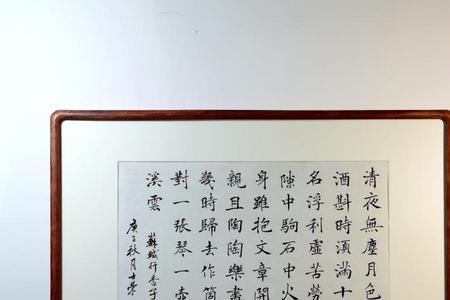 清夜無塵月色
酒斟時須滿十
名浮利虛苦勞
隙中駒石中火
身雖抱文章開
親且陶陶樂盡
幾時歸去作箇
對一張琴一壺
溪雲
蘇軾行香子
庚子秋月榮